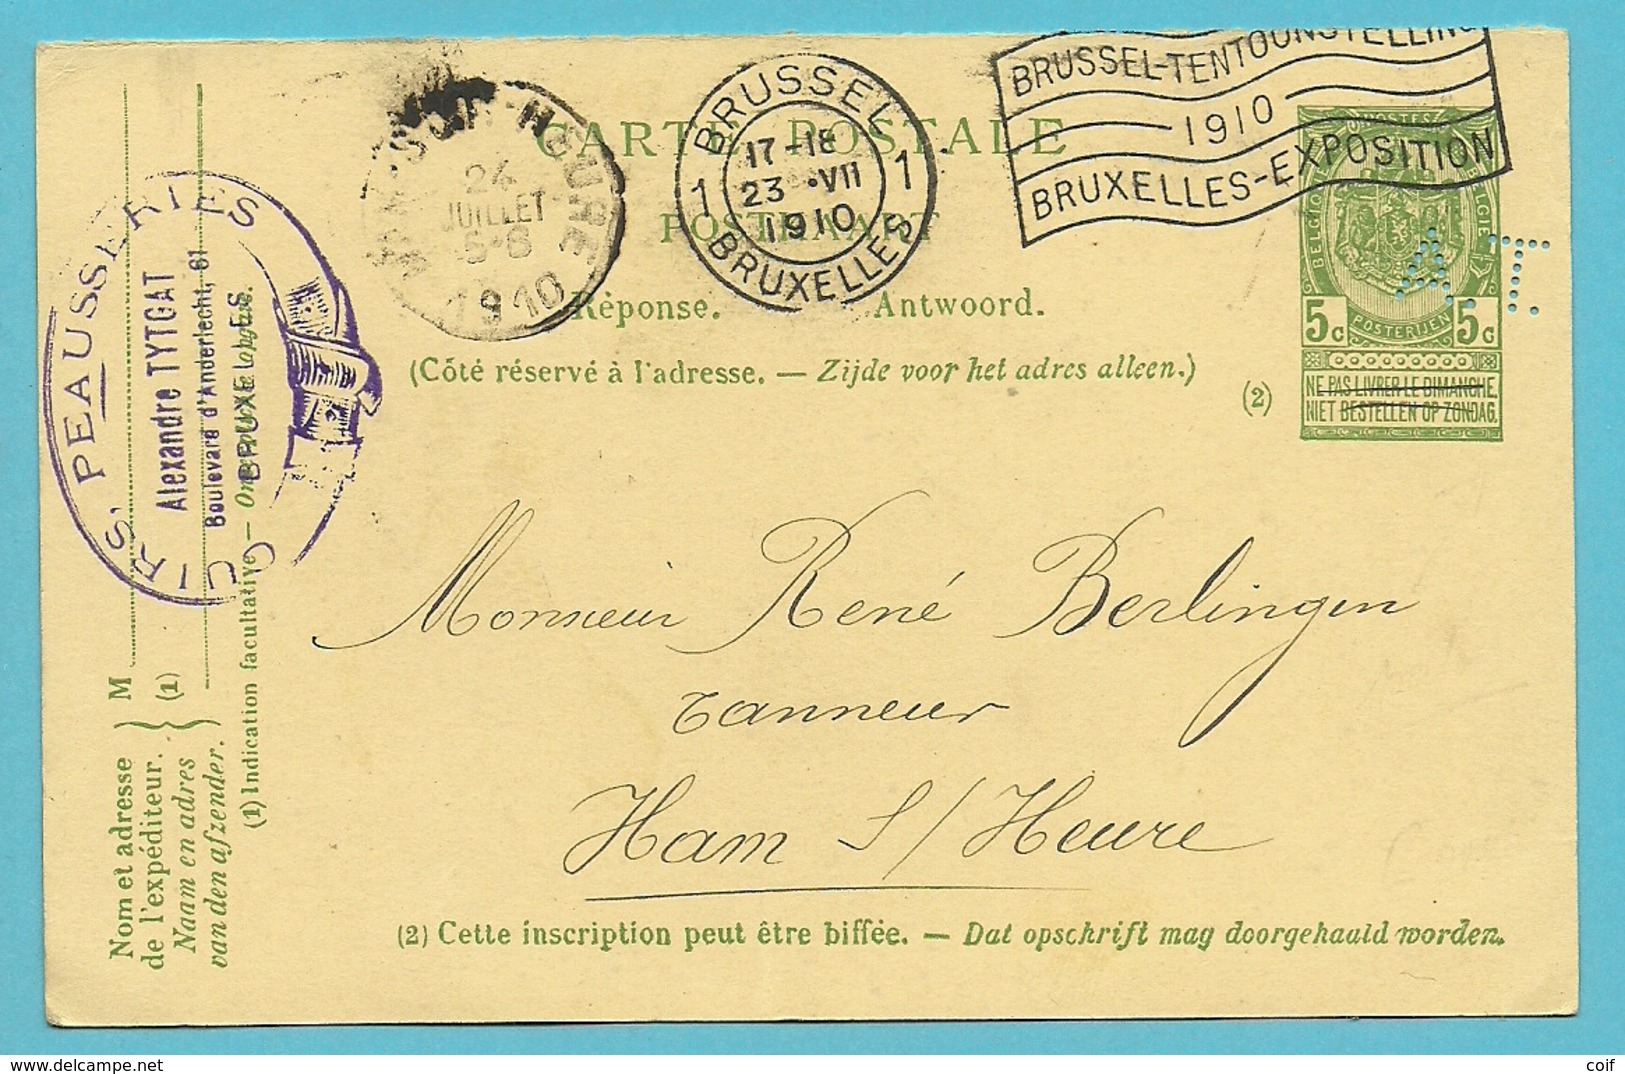 BRUSSEL-TENTOONSTELLING
1910
BRUXELLES-EXPOSITION
BRUSSEL
1 17-18 1
23 •VII
1910
BRUXELLES
HAM-SUR-HEURE
24
JUILLET
1910
CARTE POSTALE
POSTKAART
Réponse. Antwoord.
(Côté réservé à l'adresse. — Zijde voor het adres alleen.)
(2)
BELGIQUE POSTES BELGIE
5c POSTERIJEN 5c
NE PAS LIVRER LE DIMANCHE.
NIET BESTELLEN OP ZONDAG.
A.T.
CUIRS, PEAUSSERIES
Alexandre TYTGAT
Boulevard d'Anderlecht, 61
BRUXELLES
M
(1)
Nom et adresse
de l'expéditeur.
Naam en adres
van den afzender.
(1) Indication facultative —
Monsieur René Berlingin
Tanneur
Ham S/Heure
(2) Cette inscription peut être biffée. — Dat opschrift mag doorgehaald worden.
delcampe.net
coif